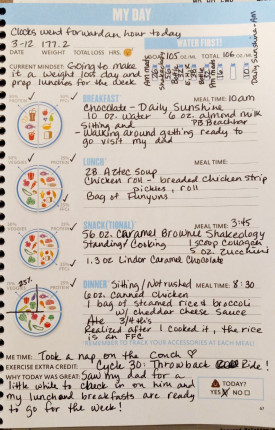 MY DAY
Clocks went forward an hour today
3-12 177.2
DATE WEIGHT TOTAL LOSS HRS.
WATER FIRST!
105 106
TOTAL
CURRENT MINDSET: Going to make
it a weight loss day and
prep lunches for the week
Daily Sunshine - AM
BREAKFAST MEAL TIME: 10am
Chocolate - Daily Sunshine
10 oz. water 6 oz. almond milk
Sitting and PB Beachbar
- Walking around getting ready to
go visit my dad
LUNCH MEAL TIME:
2B Aztec Soup
Chicken roll - breaded chicken strip
pickles, roll
Bag of Funyuns
SNACK (OPTIONAL) MEAL TIME: 3:45
56 oz. Caramel Brownie Shakeology
Standing/Cooking 1 scoop collagen
5 oz. zucchini
1.3 oz Lindor Caramel Chocolate
25%
DINNER Sitting / Not rushed MEAL TIME: 8:30
6 oz. Canned Chicken
1 bag of steamed rice & broccoli
w/ cheddar cheese sauce
Ate 3/4 this
Realized after I cooked it, the rice
is an FFC
REMEMBER TO TRACK YOUR ACCESSORIES AT EACH MEAL!
ME TIME: Took a nap on the couch
EXERCISE EXTRA CREDIT: Cycle 30: Throwback Ride!
WHY TODAY WAS GREAT: Saw my dad for a
little while to check in on him and
my lunch and breakfasts are ready
to go for the week!
TODAY?
YES NO
61